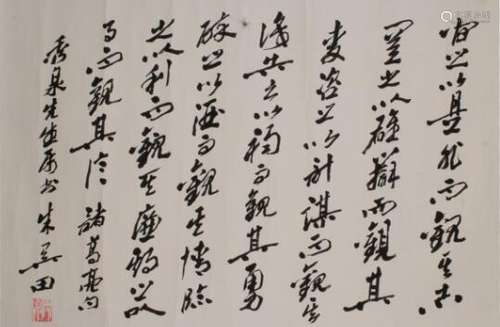 問之以是非而觀其志
窮之以辭辯而觀其
變咨之以計謀而觀其
識告之以禍而觀其勇
醉之以酒而觀其情臨
之以利而觀其廉
事而觀其信 諸葛亮句
泉先生屬書 朱關田